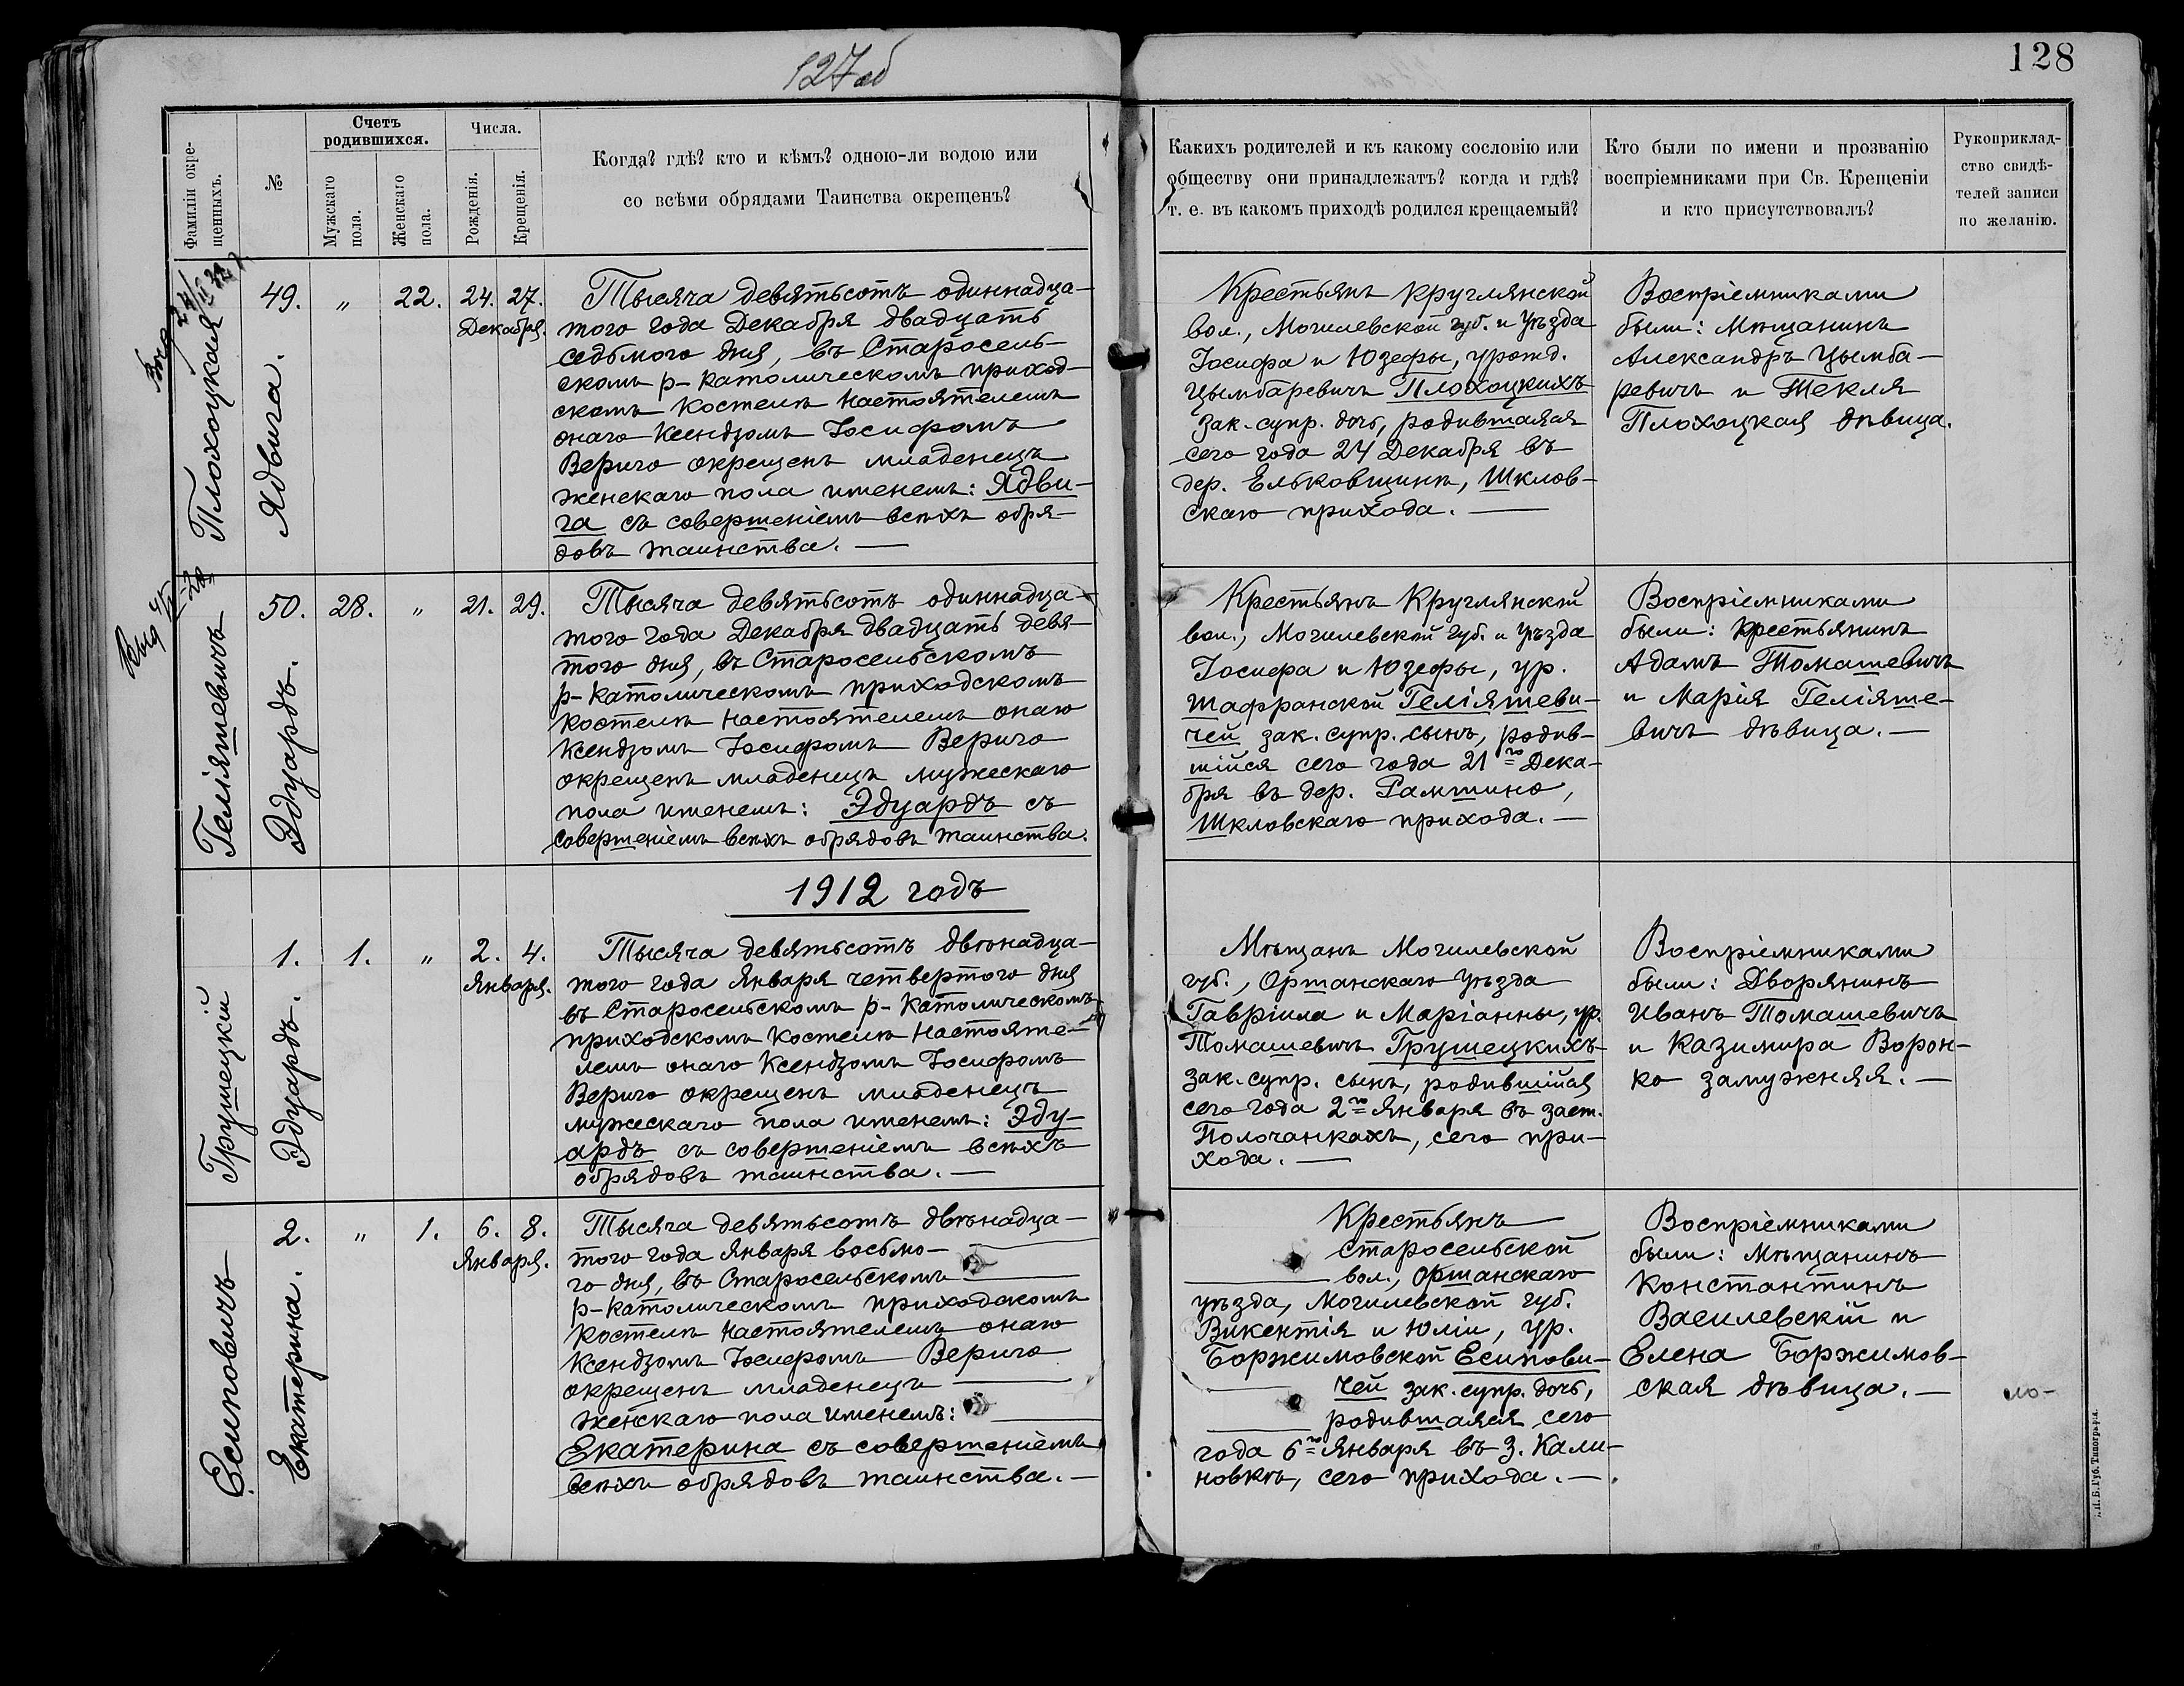 127 об
128
Фамиліи окре-
щенныхъ.
№
Счетъ
родившихся.
Мужскаго
пола.
Женскаго
пола.
Числа.
Рожденія.
Крещенія.
Когда? гдѣ? кто и кѣмъ? одною-ли водою или
со всѣми обрядами Таинства окрещенъ?
Какихъ родителей и къ какому сословію или
обществу они принадлежатъ? когда и гдѣ?
т. е. въ какомъ приходѣ родился крещаемый?
Кто были по имени и прозванію
воспріемниками при Св. Крещеніи
и кто присутствовалъ?
Рукоприклад-
ство свидѣ-
телей записи
по желанію.
Плохоцкая
Ядвига.
49. " 22. 24. 27.
Декабря.
Тысяча девятьсотъ одиннадца-
того года Декабря двадцать
седьмого дня, въ Старосель-
скомъ р-католическомъ приход-
скомъ костелѣ настоятелемъ
онаго Ксендзомъ Іосифомъ
Верыго окрещенъ младенецъ
женскаго пола именемъ: Ядви-
га съ совершеніемъ всѣхъ обря-
довъ таинства. —
Крестьянъ Круглянской
вол., Могилевской губ. и уѣзда
Іосифа и Юзефы, урожд.
Цымбаревичъ Плохоцкихъ
зак. супр. дочь, родившаяся
сего года 24 Декабря въ
дер. Ельковщинѣ, Шклов-
скаго прихода. —
Воспріемниками
были: Мѣщанинъ
Александръ Цымба-
ревичъ и Текля
Плохоцкая дѣвица.
Геліяшевичъ
Эдуардъ.
50. 28. " 21. 29.
Тысяча девятьсотъ одиннадца-
того года Декабря двадцать девя-
того дня, въ Старосельскомъ
р-католическомъ приходскомъ
костелѣ настоятелемъ онаго
Ксендзомъ Іосифомъ Верыго
окрещенъ младенецъ мужескаго
пола именемъ: Эдуардъ съ
совершеніемъ всѣхъ обрядовъ таинства.
Крестьянъ Круглянской
вол., Могилевской губ. и уѣзда
Іосифа и Юзефы, ур.
Шафранской Геліяшеви-
чей зак. супр. сынъ, родив-
шійся сего года 21го Дека-
бря въ дер. Рамшино,
Шкловскаго прихода. —
Воспріемниками
были: Крестьянинъ
Адамъ Томашевичъ
и Марія Геліяше-
вичъ дѣвица. —
1912 годъ
Грушецкій
Эдуардъ.
1. 1. " 2. 4.
Января.
Тысяча девятьсотъ двѣнадца-
того года Января четвертого дня
въ Старосельскомъ р-католическомъ
приходскомъ костелѣ настояте-
лемъ онаго Ксендзомъ Іосифомъ
Верыго окрещенъ младенецъ
мужескаго пола именемъ: Эду-
ардъ съ совершеніемъ всѣхъ
обрядовъ таинства. —
Мѣщанъ Могилевской
губ., Оршанскаго уѣзда
Гавріила и Маріанны, ур.
Томашевичъ Грушецкихъ
зак. супр. сынъ, родившійся
сего года 2го Января въ заст.
Полочанкахъ, сего при-
хода. —
Воспріемниками
были: Дворянинъ
Иванъ Томашевичъ
и Казимира Ворон-
ко замужняя. —
Есиповичъ
Екатерина.
2. " 1. 6. 8.
Января.
Тысяча девятьсотъ двѣнадца-
того года Января восьмо-
го дня, въ Старосельскомъ
р-католическомъ приходскомъ
костелѣ настоятелемъ онаго
Ксендзомъ Іосифомъ Верыго
окрещенъ младенецъ
женскаго пола именемъ:
Екатерина съ совершеніемъ
всѣхъ обрядовъ таинства. —
Крестьянъ
Старосельской
вол., Оршанскаго
уѣзда, Могилевской губ.
Викентія и Юліи, ур.
Боржимовской Есипови-
чей зак. супр. дочь,
родившаяся сего
года 6го Января въ з. Кали-
новкѣ, сего прихода. —
Воспріемниками
были: Мѣщанинъ
Константинъ
Василевскій и
Елена Боржимов-
ская дѣвица. —
Губ. Типографія.